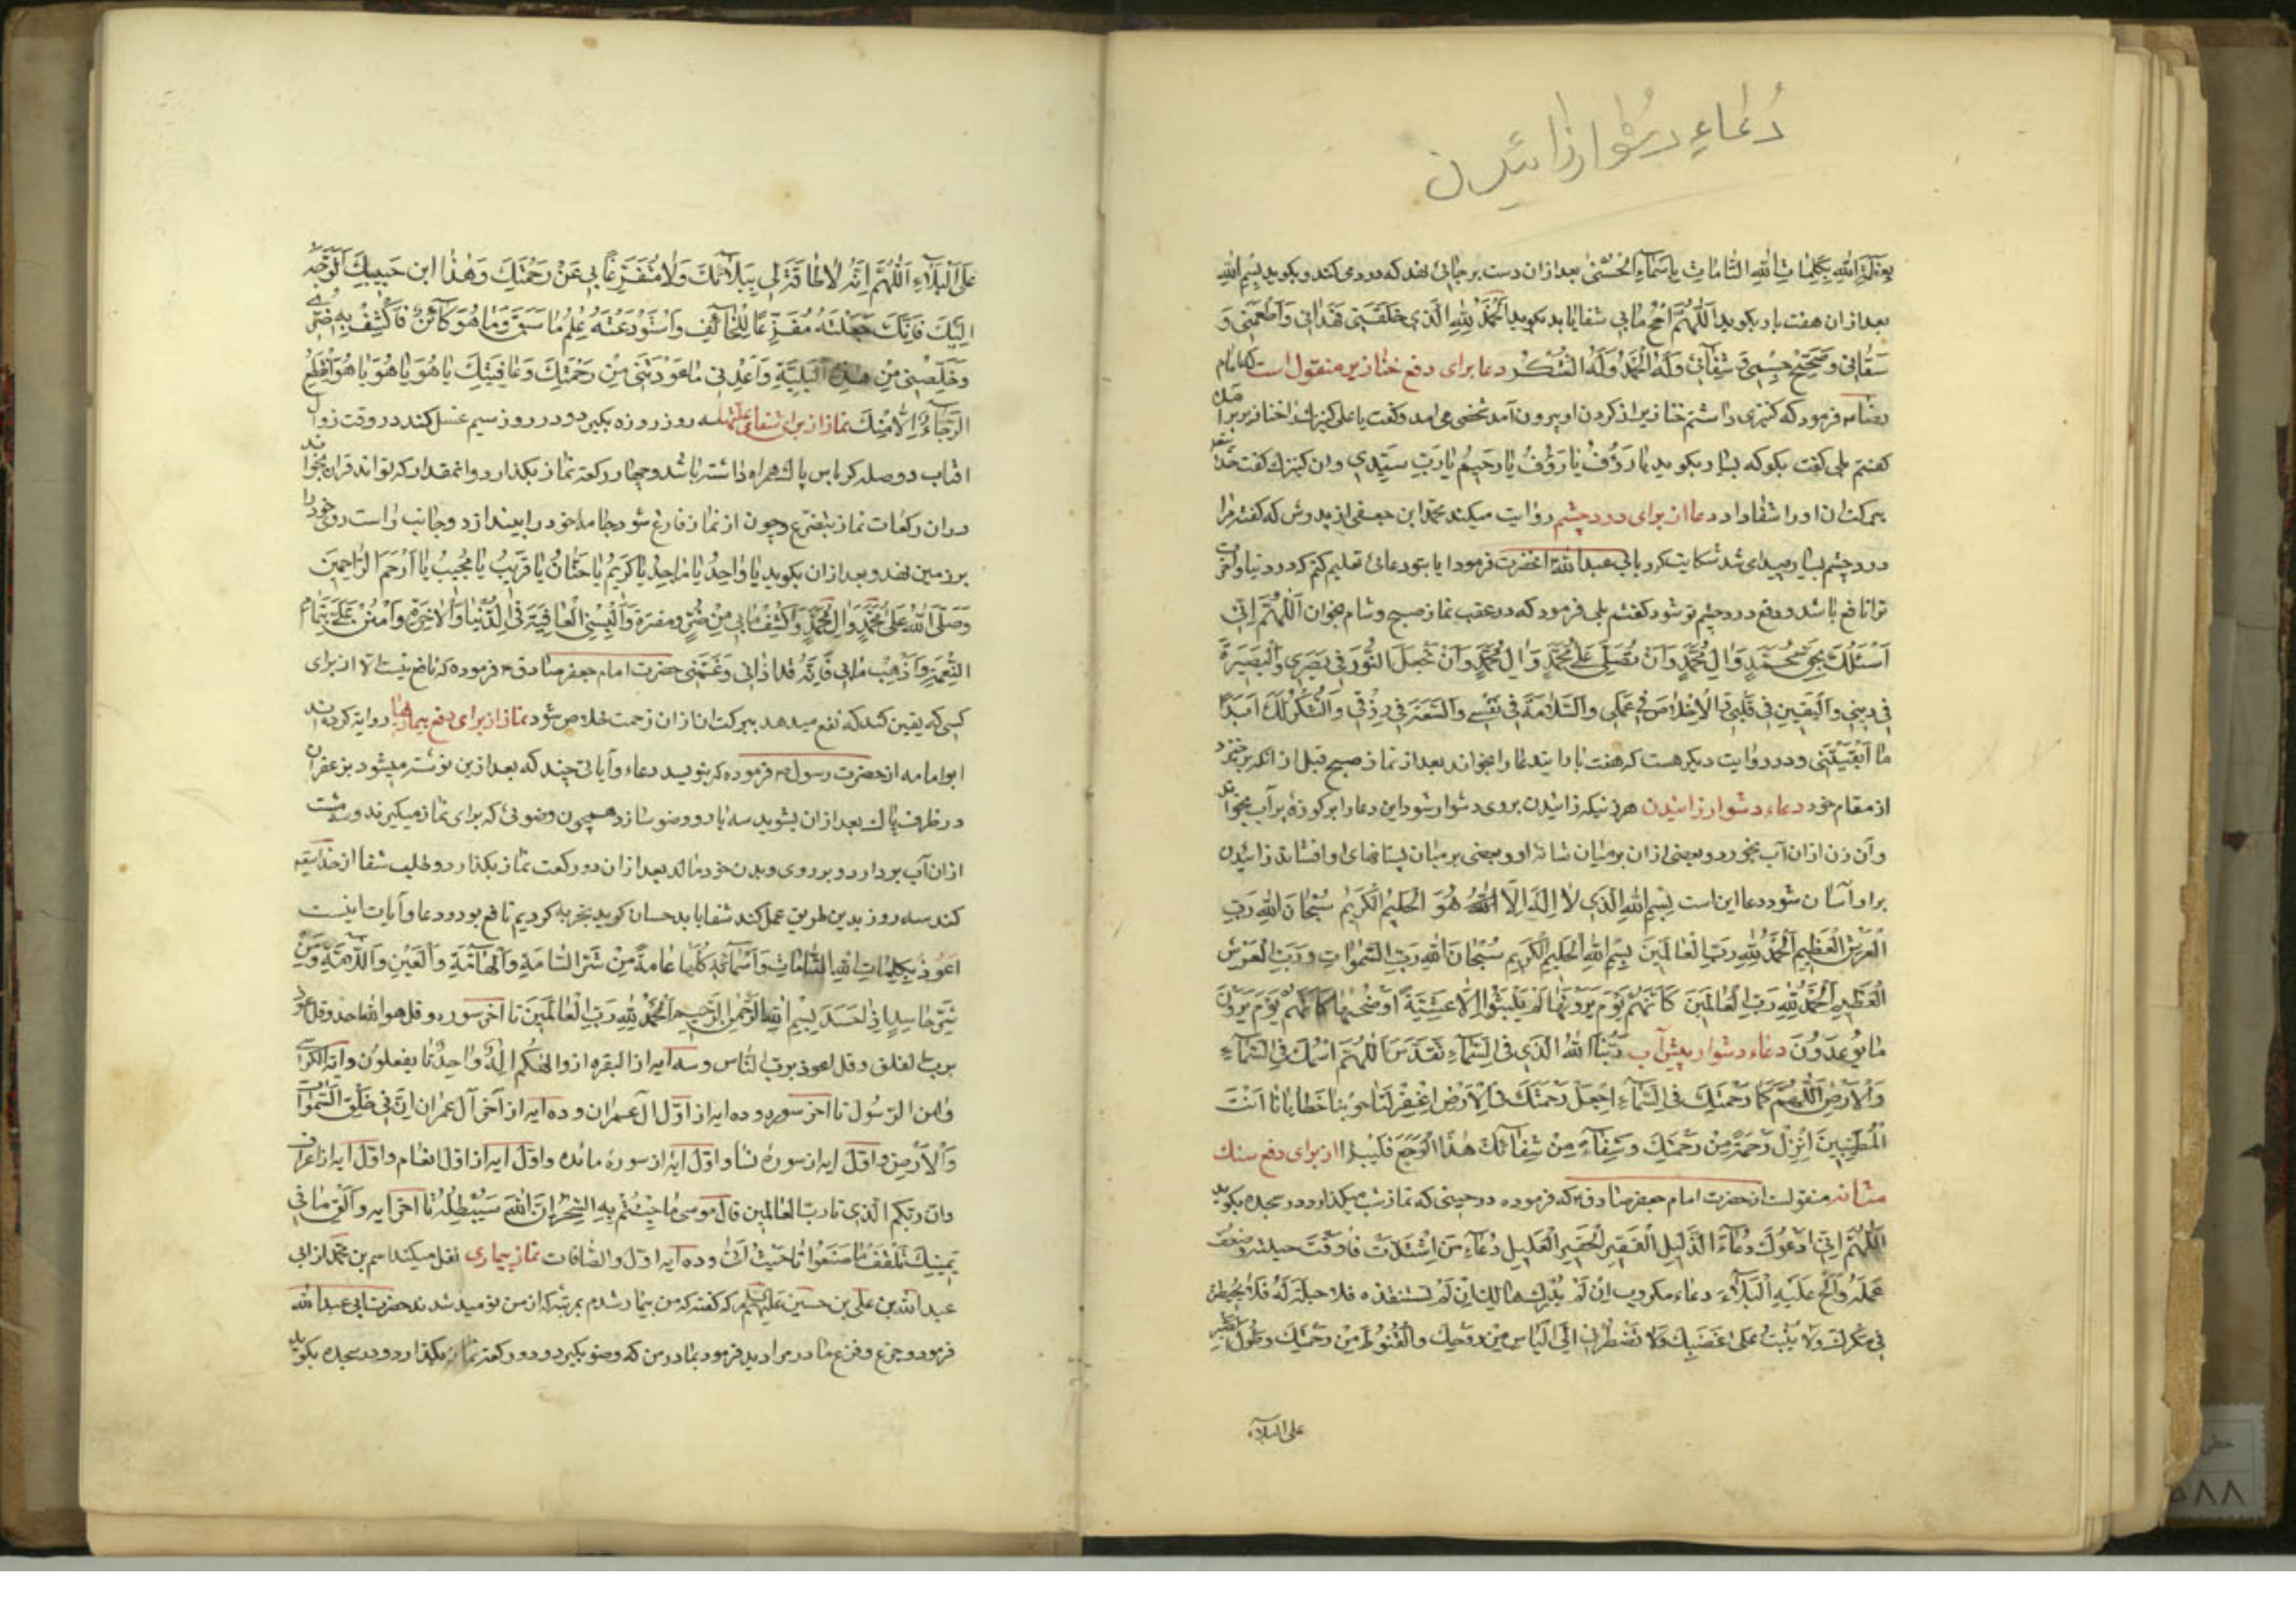 دُعاءِ دشوار زائیدن
بعِزَّةِ اللهِ بِكَلِماتِ اللهِ التّامّاتِ بِاَسْماءِ الحُسْنى بعد ازان دست بر جائی نهد که درد می کند و بکوید بِسْمِ اللهِ
بعد ازان هفت بار بکوید اَللّهُمَّ امْحُ ما بي شفا یابد بکوید اَلْحَمْدُ لِلّهِ الَّذي خَلَقَني فَهَداني وَاَطْعَمَني وَ
سَقاني وَصَحَّحَ جِسْمي وَشِفاني وَلَهُ الْحَمْدُ وَلَهُ الشُّكْرُ دعا برای دفع خنازیر منقول است که امام
رضا فرمود که کنیزی داشتم خنازیر از کردن او بیرون آمد شخصی می امد و کفت یا علی کنیزك را خنازیر برآمده
کفتم بلی کفت بکو که بسیار بکوید یا رَؤُفُ یا رَؤُفُ یا رَحيمُ یا رَبِّ سَيِّدي وان کنیزك کفت
ببرکت ان اورا شفا داد دعا از برای درد چشم روایت میکند محمد ابن جعفی از پدرش که کفت مرا
درد چشم بسیار پیدا می شد شکایت کرد بابی عبد الله انحضرت فرمود ایا بتو دعائی تعلیم کنم که در دنیا واخرت
ترا نافع باشد و دفع درد چشم تو شود کفتم بلی فرمود که در عقب نماز صبح و شام بخوان اَللّهُمَّ اِنّي
اَسْئَلُكَ بِحَقِّ مُحَمَّدٍ وَالِ مُحَمَّدٍ وَاَنْ تُصَلِّيَ عَلى مُحَمَّدٍ وَالِ مُحَمَّدٍ وَاَنْ تَجْعَلَ النُّورَ في بَصَري وَالْبَصيرَةَ
في ديني وَالْيَقينَ في قَلْبي وَالْاِخْلاصَ في عَمَلي وَالسَّلامَةَ في نَفْسي وَالسَّعَةَ في رِزْقي وَالشُّكْرَ لَكَ اَبَداً
ما اَبْقَيْتَني و در روایت دیکر هست که هفت بار اینده دعا را بخواند بعد از نماز صبح قبل از انکه برخیزد
از مقام خود دعاء دشوار زائیدن هر زنی که زائیدن بروی دشوار شود این دعا را بر کوزۀ پر آب بخواند
وآن زن ازان آب بخورد و بعضی ازان بر میان شانۀ او و بعضی بر میان پستانهای او افشاند زائیدن
براو آسان شود دعا این است بِسْمِ اللهِ الَّذي لا اِلهَ اِلَّا اللهُ هُوَ الْحَليمُ الْكَريمُ سُبْحانَ اللهِ رَبِّ
الْعَرْشِ الْعَظيمِ اَلْحَمْدُ لِلّهِ رَبِّ الْعالَمينَ بِسْمِ اللهِ الْحَليمِ الْكَريمِ سُبْحانَ اللهِ رَبِّ السَّمواتِ وَرَبِّ الْعَرْشِ
الْعَظيمِ اَلْحَمْدُ لِلّهِ رَبِّ الْعالَمينَ كَاَنَّهُمْ يَوْمَ يَرَوْنَها لَمْ يَلْبَثُوا اِلّا عَشِيَّةً اَوْ ضُحيها كَاَنَّهُمْ يَوْمَ يَرَوْنَ
ما يُوعَدُونَ دعاء دشوار پیش آب رَبُّنَا اللهُ الَّذي فِي السَّماءِ تَقَدَّسَ اَللّهُمَّ اسْمُكَ فِي السَّماءِ
وَالْاَرْضِ اَللّهُمَّ كَما رَحْمَتُكَ فِي السَّماءِ اِجْعَلْ رَحْمَتَكَ فِي الْاَرْضِ اِغْفِرْ لَنا حوبنا خَطايانا اَنْتَ
الْمُطَيِّبينَ اَنْزِلْ رَحْمَةً مِنْ رَحْمَتِكَ وَشِفاءً مِنْ شِفائِكَ هذَا الْوَجَعِ فَلْيَبْرَا از برای دفع سنك
مثانه منقولست از حضرت امام جعفر صادق که فرموده در حینی که نماز شب میکذارد و در سجده بکوید
اَللّهُمَّ اِنّي اَدْعُوكَ دُعاءَ الذَّليلِ الْفَقيرِ الْحَقيرِ الْعَليلِ دُعاءَ مَنِ اشْتَدَّتْ فاقَتُهُ حيلته وضعف
عَمَلُهُ وَاَلَحَّ عَلَيْهِ الْبَلاءُ دعاء مكروب اِنْ لَمْ تُدْرِكْهُ اِنْ لَمْ تستنقذه فلا حيلَةَ لَهُ فَلا تُحِطْ
في مكرك ولا يُثْبِتْ على غَضَبِكَ وَلا تَضْطَرَّني اِلَى الْيَاْسِ مِنْ رَوْحِكَ وَالْقُنُوطِ مِنْ رَحْمَتِكَ وَطُولِ
علی البلاء
عَلَى الْبَلاءِ اَللّهُمَّ اِنَّهُ لا طاقَةَ لي بِبَلائِكَ وَلا عَنْ رَحْمَتِكَ وَهذا ابن حَبيبِكَ اَتَوَجَّهُ
اِلَيْكَ فَاِنَّكَ جَعَلْتَهُ مُفَزَّعاً لِلْخائِفِ وَاسْتَوْدَعْتَهُ عِلْمَ ما سَبَقَ وَما هُوَ كائِنٌ فَاكْشِفْ بِهِ ضُرّي
وَخَلِّصْني مِنْ هذِهِ الْبَلِيَّةِ وَاَعِدْني ما عَوَّدْتَني مِنْ رَحْمَتِكَ وَعافِيَتِكَ يا هُوَ يا هُوَ يا هُوَ اِنْقَطَعَ
الرَّجاءُ اِلّا مِنْكَ نماز از برای شفای علتها سه روز روزه بکیرد و در روز سیم غسل کند در وقت زوال
افتاب دو صله کرباس پاك همراه داشته باشد و چهار رکعت نماز بکذارد و انمقدار که تواند قران بخواند
دران رکعات نماز بتضرع وچون از نماز فارغ شود جامهٔ خود را بیندازد و جانب راست روی خود را
بر زمین نهد و بعد ازان بکوید یا واحِدُ یا ماجِدُ یا كَريمُ یا حَنّانُ یا قَريبُ یا مُجيبُ یا اَرْحَمَ الرّاحِمينَ
وَصَلَّى اللهُ عَلى مُحَمَّدٍ وَالِ مُحَمَّدٍ وَاكْشِفْ ما بي مِنْ ضُرٍّ ومعرة وَاَلْبِسْنِي الْعافِيَةَ فِي الدُّنْيا وَالْاخِرَةِ وَامْنُنْ عَلَيَّ بِتَمامِ
النِّعْمَةِ وَاَذْهِبْ ما بي فَاِنَّهُ قَدْ اذاني وَغَمَّني حضرت امام جعفر صادق فرموده که نافع نیست الا از برای
کسی که یقین کند که نفع میدهد ببرکت ان ازان زحمت خلاص شود نماز از برای دفع بیماریها روایة کرده اند
ابو امامه از حضرت رسول فرموده که بنویسد دعاء و آیاتی چند که بعد ازین نوشته میشود بزعفران
در ظرف پاك بعد ازان بشوید سه بار و وضو سازد همچون وضوئی که برای نماز میکیرند و سه مشت
ازان آب بردارد و بر روی وبدن خود مالد بعد ازان دو رکعت نماز بکذارد و طلب شفا از خدا
کند سه روز بدین طریق عمل کند شفا یابد حسان کوید تجربه کردیم نافع بود و دعا و آیات اینست
اَعُوذُ بِكَلِماتِ اللهِ التّامّاتِ وَاَسْمائِهِ كُلِّها عامة مِنْ شَرِّ السّامَّةِ وَالْهامَّةِ وَالْعَيْنِ وَاللّامَّةِ وَمِنْ
شَرِّ حاسِدٍ اِذا حَسَدَ بِسْمِ اللهِ الرَّحْمنِ الرَّحيمِ اَلْحَمْدُ لِلّهِ رَبِّ الْعالَمينَ تا آخر سوره و قل هو الله احد و قل اعوذ
برب الفلق و قل اعوذ برب الناس وسه ایه از البقره از والهُكُم اِلهٌ واحِدٌ تا یعقلون وایة الکرسی
وامن الرسول تا آخر سوره و ده ایه از اوّل آل عمران و ده ایه از آخر آل عمران اِنَّ في خَلْقِ السَّمواتِ
وَالْاَرْضِ و اوّل ایه از سورهٔ نسا و اوّل ایه از سورهٔ مائده و اوّل ایه از اول انعام و اوّل ایه از اعراف
وان ربکم الذی تا رب العالمین قال موسی ما جِئْتُمْ بِهِ السِّحْرُ اِنَّ اللهَ سَيُبْطِلُهُ تا آخر ایه و اَلْقِ ما في
يَمينِكَ تَلْقَفْ ما صَنَعُوا تا حَيْثُ اَتى و ده آیه اول والصافات نماز بیماری نقل میکند اسم بن محمد از ابی
عبد الله بن علی بن حسین علیهم السلام که کفته که من بیمار شدم بمرتبه که از من نومید شدند حضرت ابی عبد الله
فرمود و جزع و فزع مادر مرا دید فرمود بمادر من که وضو بکیرد و دو رکعت نماز بکذارد و در سجده بکوید